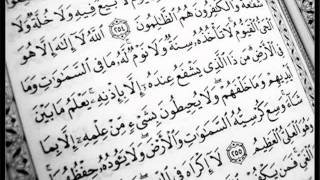 بَيْعٌ فِيهِ وَلَا خُلَّةٌ وَلَا
شَفَٰعَةٌ وَالْكَٰفِرُونَ هُمُ الظَّٰلِمُونَ ٢٥٤ اللَّهُ لَا إِلَٰهَ إِلَّا هُوَ
الْحَيُّ الْقَيُّومُ لَا تَأْخُذُهُ سِنَةٌ وَلَا نَوْمٌ لَهُ مَا فِي السَّمَٰوَٰتِ وَمَا
فِي الْأَرْضِ مَنْ ذَا الَّذِي يَشْفَعُ عِنْدَهُ إِلَّا بِإِذْنِهِ يَعْلَمُ مَا بَيْنَ
أَيْدِيهِمْ وَمَا خَلْفَهُمْ وَلَا يُحِيطُونَ بِشَيْءٍ مِنْ عِلْمِهِ إِلَّا بِمَا
شَاءَ وَسِعَ كُرْسِيُّهُ السَّمَٰوَٰتِ وَالْأَرْضَ وَلَا يَئُودُهُ حِفْظُهُمَا
وَهُوَ الْعَلِيُّ الْعَظِيمُ ٢٥٥ لَا إِكْرَاهَ فِي
الْغَيِّ فَمَنْ يَكْفُرْ